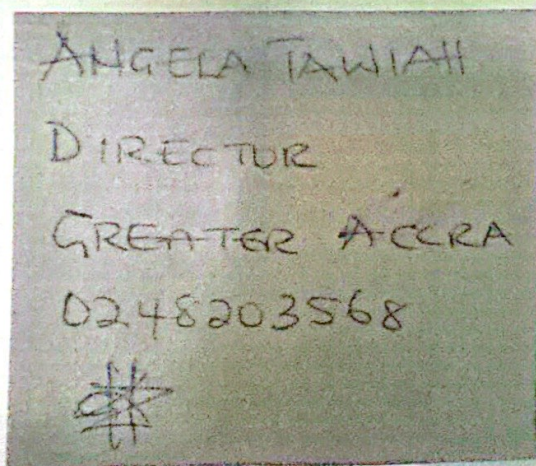 ANGELA TAWIAH
DIRECTOR
GREATER ACCRA
0248203568